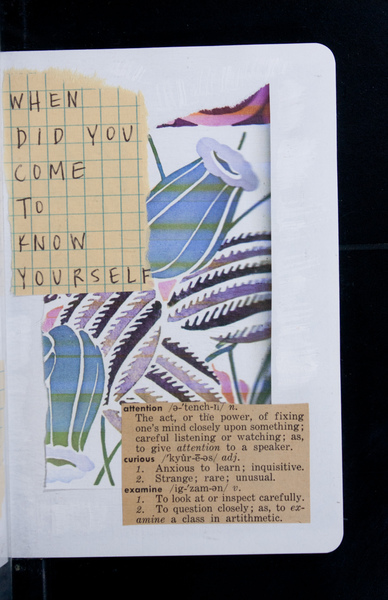 WHEN
DID YOU
COME
TO
KNOW
YOURSELF
attention /ə-ˈtench-n/ n.
The act, or the power, of fixing
one's mind closely upon something;
careful listening or watching; as,
to give attention to a speaker.
curious /ˈkyûr-ē-əs/ adj.
1. Anxious to learn; inquisitive.
2. Strange; rare; unusual.
examine /ig-ˈzam-ən/ v.
1. To look at or inspect carefully.
2. To question closely; as, to ex-
amine a class in artithmetic.